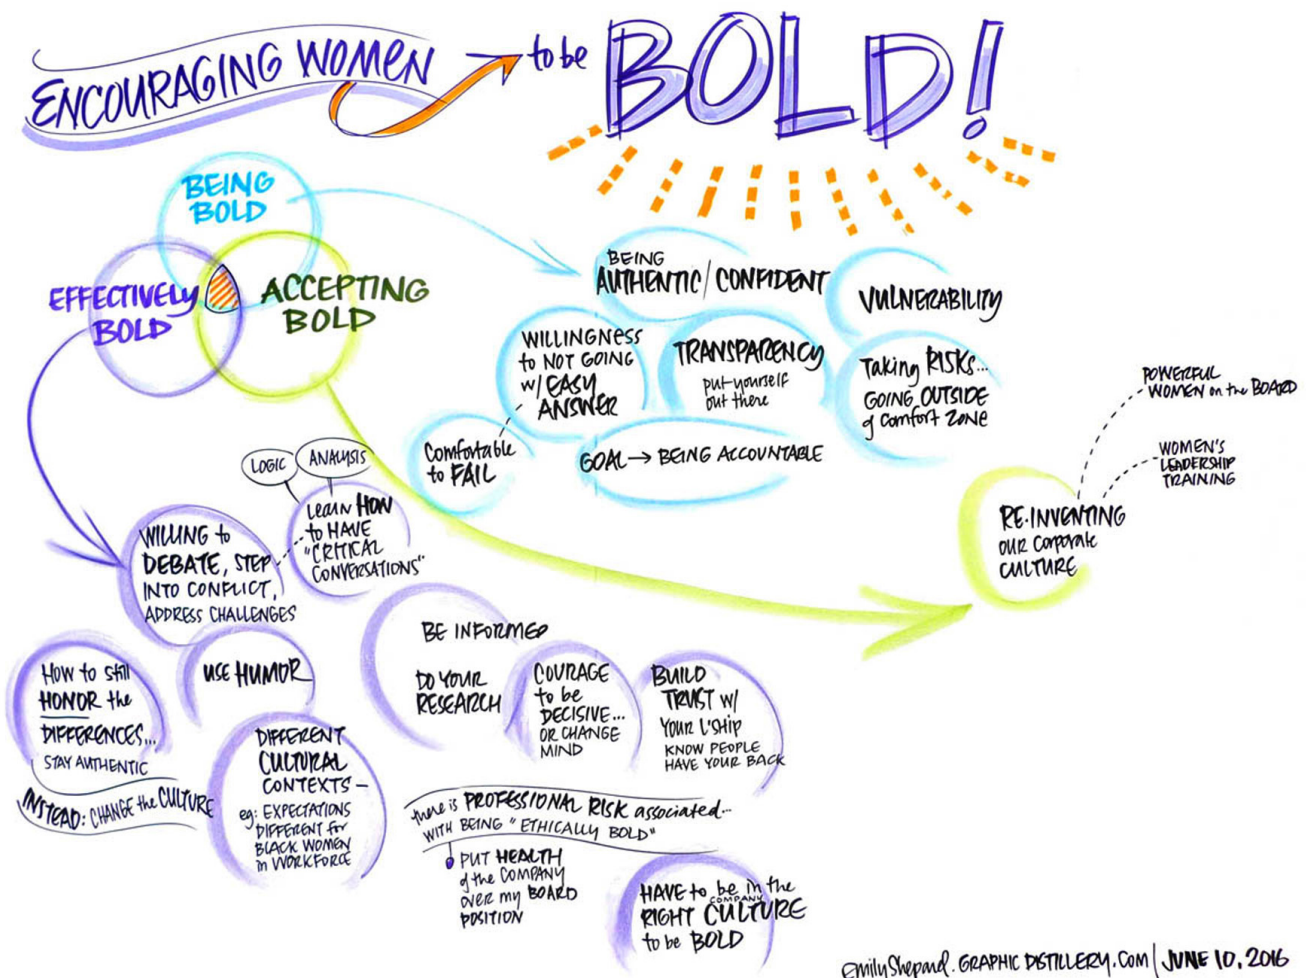 ENCOURAGING WOMEN
to be
BOLD!
BEING
BOLD
EFFECTIVELY
BOLD
ACCEPTING
BOLD
BEING
AUTHENTIC/CONFIDENT
VULNERABILITY
WILLINGNESS
to NOT GOING
w/ EASY
ANSWER
TRANSPARENCY
put yourself
out there
Taking RISKS...
GOING OUTSIDE
of comfort ZONE
Comfortable
to FAIL
GOAL → BEING ACCOUNTABLE
POWERFUL
WOMEN on the BOARD
WOMEN'S
LEADERSHIP
TRAINING
RE-INVENTING
our Corporate
CULTURE
LOGIC
ANALYSIS
Learn HOW
to HAVE
"CRITICAL
CONVERSATIONS"
WILLING to
DEBATE, STEP
INTO CONFLICT,
ADDRESS CHALLENGES
HOW to still
HONOR the
DIFFERENCES...
STAY AUTHENTIC
INSTEAD: CHANGE the CULTURE
USE HUMOR
DIFFERENT
CULTURAL
CONTEXTS –
eg: EXPECTATIONS
DIFFERENT for
BLACK WOMEN
in WORKFORCE
BE INFORMED
DO YOUR
RESEARCH
COURAGE
to be
DECISIVE...
OR CHANGE
MIND
BUILD
TRUST w/
YOUR L'SHIP
KNOW PEOPLE
HAVE YOUR BACK
there is PROFESSIONAL RISK associated...
WITH BEING "ETHICALLY BOLD"
PUT HEALTH
of the COMPANY
OVER my BOARD
POSITION
HAVE to be in the
COMPANY
RIGHT CULTURE
to be BOLD
Emily Shepard. GRAPHIC DISTILLERY.COM | JUNE 10, 2016